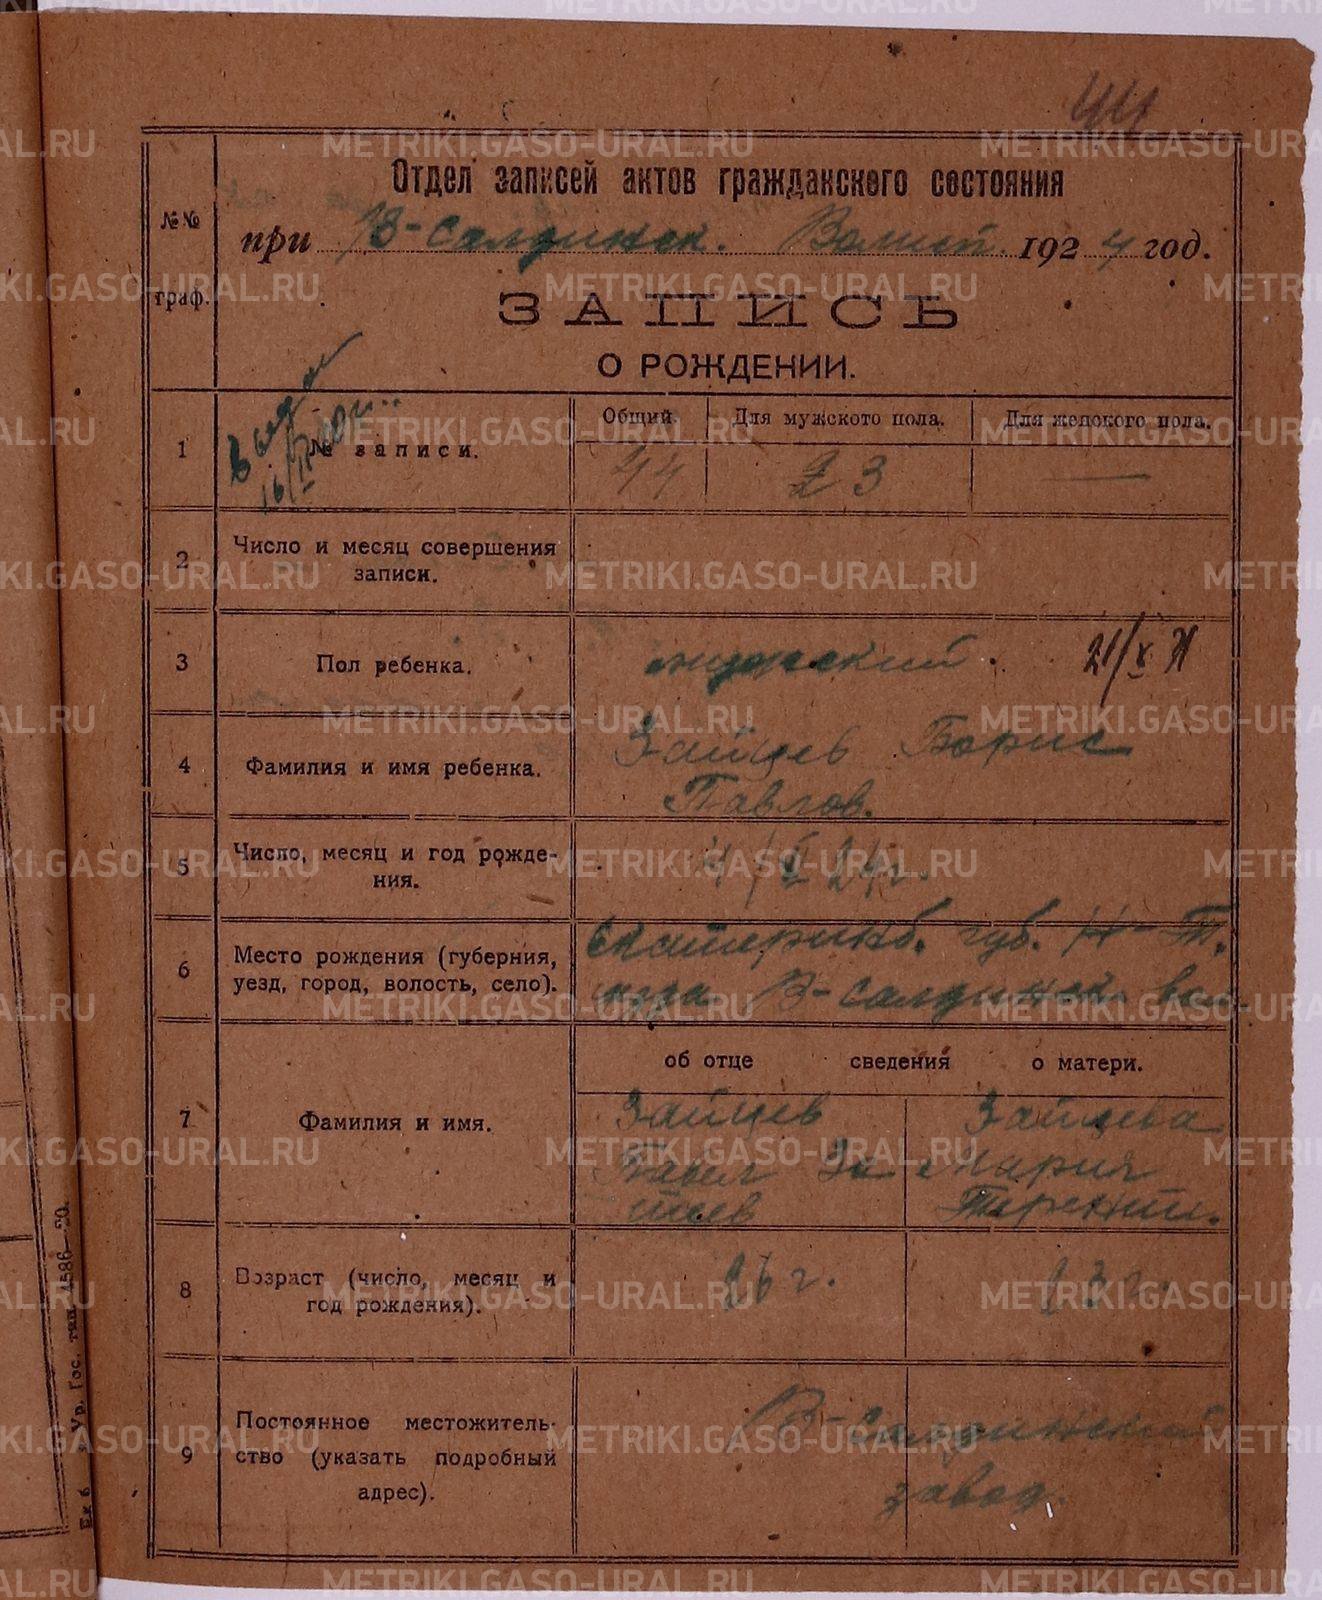 44
Отдел записей актов гражданского состояния
№№ граф.
при В-Салдинск. Волисп. 1924 год.
ЗАПИСЬ
О РОЖДЕНИИ.
1
№ записи.
Общий.
Для мужского пола.
Для женского пола.
44
23
—
2
Число и месяц совершения
записи.
3
Пол ребенка.
мужской.
21/X
4
Фамилия и имя ребенка.
Зайцев Борис
Павлов.
5
Число, месяц и год рожде-
ния.
24 г.
6
Место рождения (губерния,
уезд, город, волость, село).
Екатеринб. губ. Н-Т.
уезда В-салдинск вол
об отце сведения о матери.
7
Фамилия и имя.
Зайцев
Павел
Зайцева
Мария
Терент.
8
Возраст (число, месяц и
год рождения).
26 г.
23 г.
9
Постоянное местожитель-
ство (указать подробный
адрес).
В-Салдинский
завод.
Ур. Гос. тип. 4586—20.
METRIKI.GASO-URAL.RU